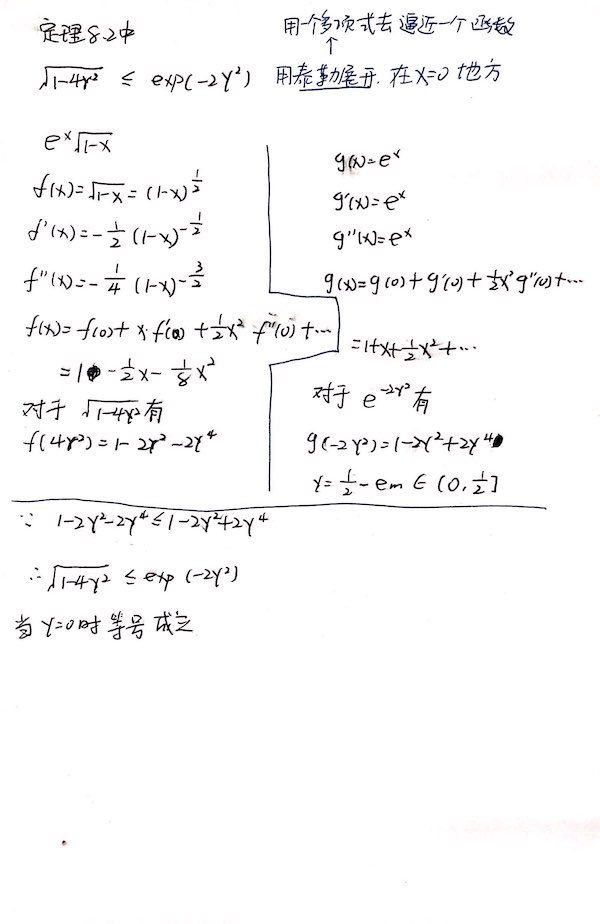 定理8.2中
用一个多项式去逼近一个函数
↑
√(1-4γ²) ≤ exp(-2γ²)
用泰勒展开. 在x=0地方
eˣ √(1-x)
f(x)=√(1-x) = (1-x)^(1/2)
f'(x)=-1/2 (1-x)^(-1/2)
f''(x)=-1/4 (1-x)^(-3/2)
f(x)=f(0)+x·f'(0)+1/2x² f''(0)+…
=1 -1/2x-1/8x²
对于 √(1-4γ²) 有
f(4γ²)=1-2γ²-2γ⁴
g(x)=eˣ
g'(x)=eˣ
g''(x)=eˣ
g(x)=g(0)+g'(0)+1/2x²g''(0)+…
=1+x+1/2x²+…
对于 e^(-2γ²) 有
g(-2γ²)=1-2γ²+2γ⁴
γ=1/2-em ∈ (0,1/2]
∵ 1-2γ²-2γ⁴≤1-2γ²+2γ⁴
∴ √(1-4γ²) ≤ exp(-2γ²)
当γ=0时等号成立